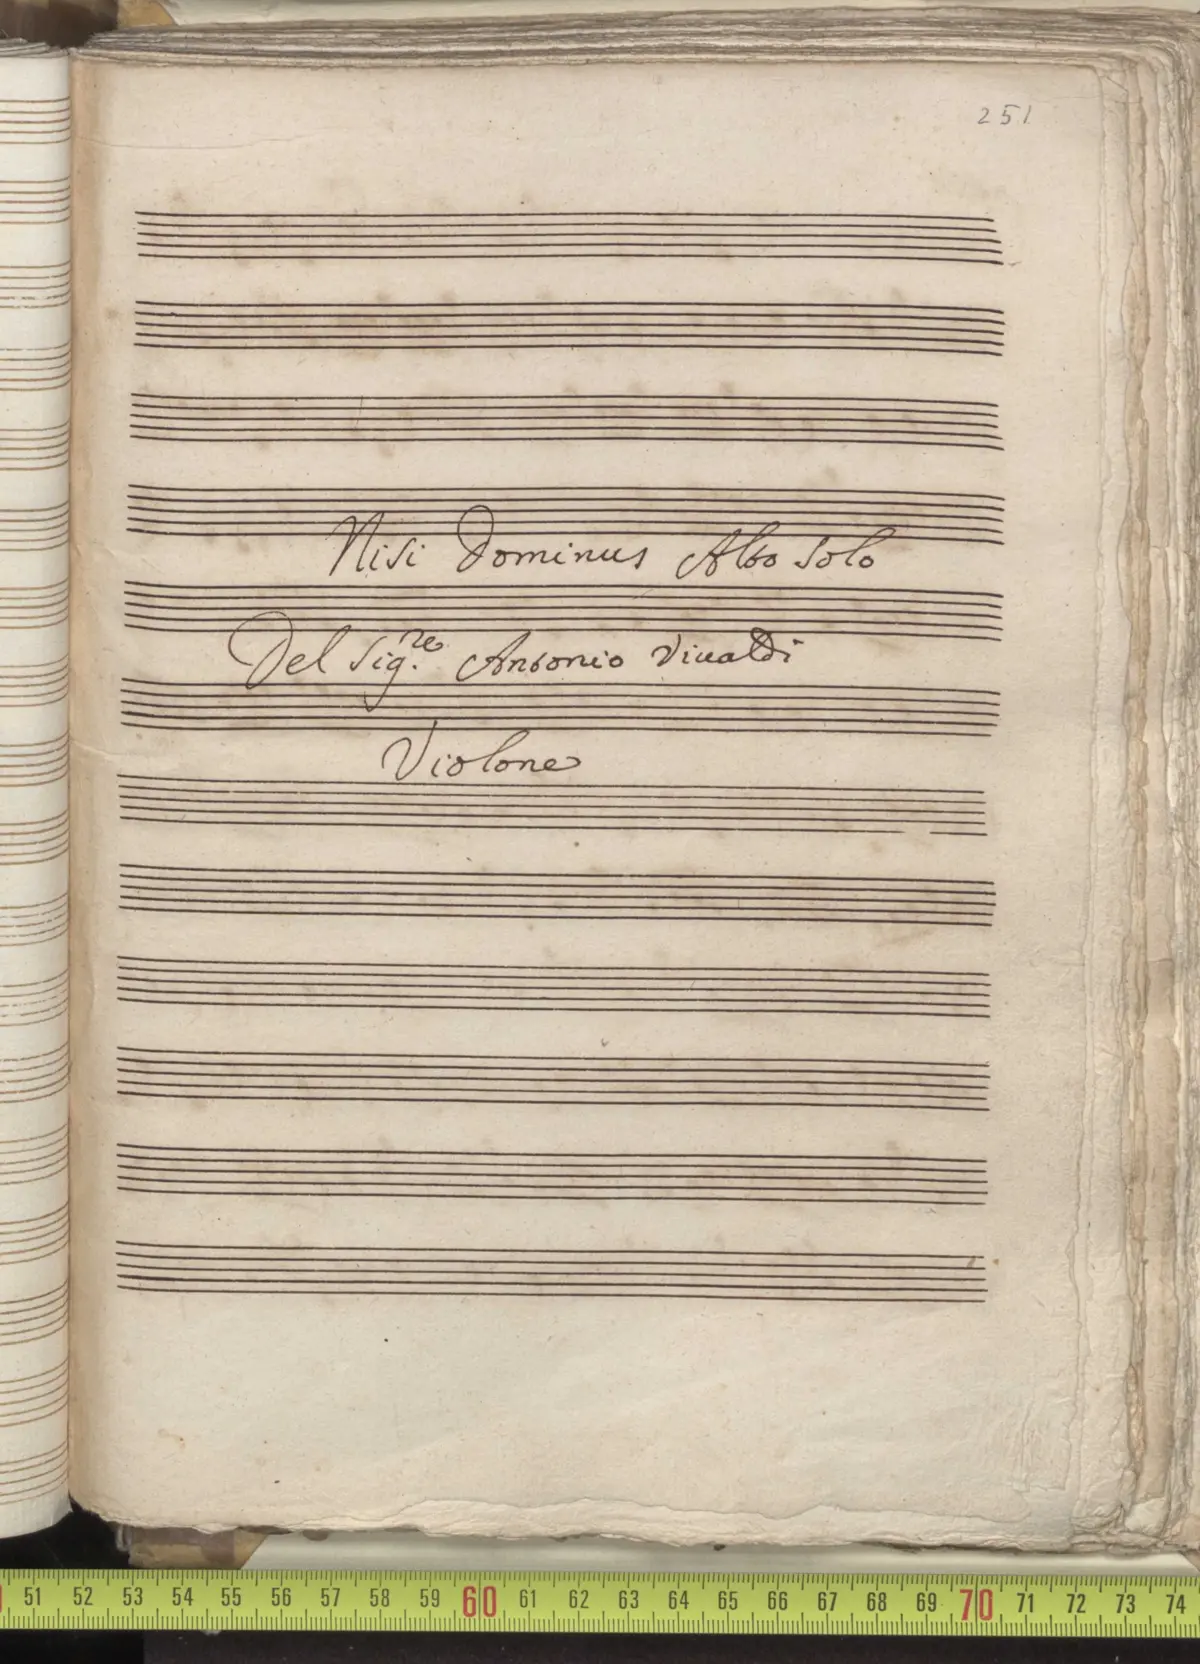 251
Nisi Dominus Alto solo
Del Sig.re Antonio Vivaldi
Violone
51 52 53 54 55 56 57 58 59 60 61 62 63 64 65 66 67 68 69 70 71 72 73 74